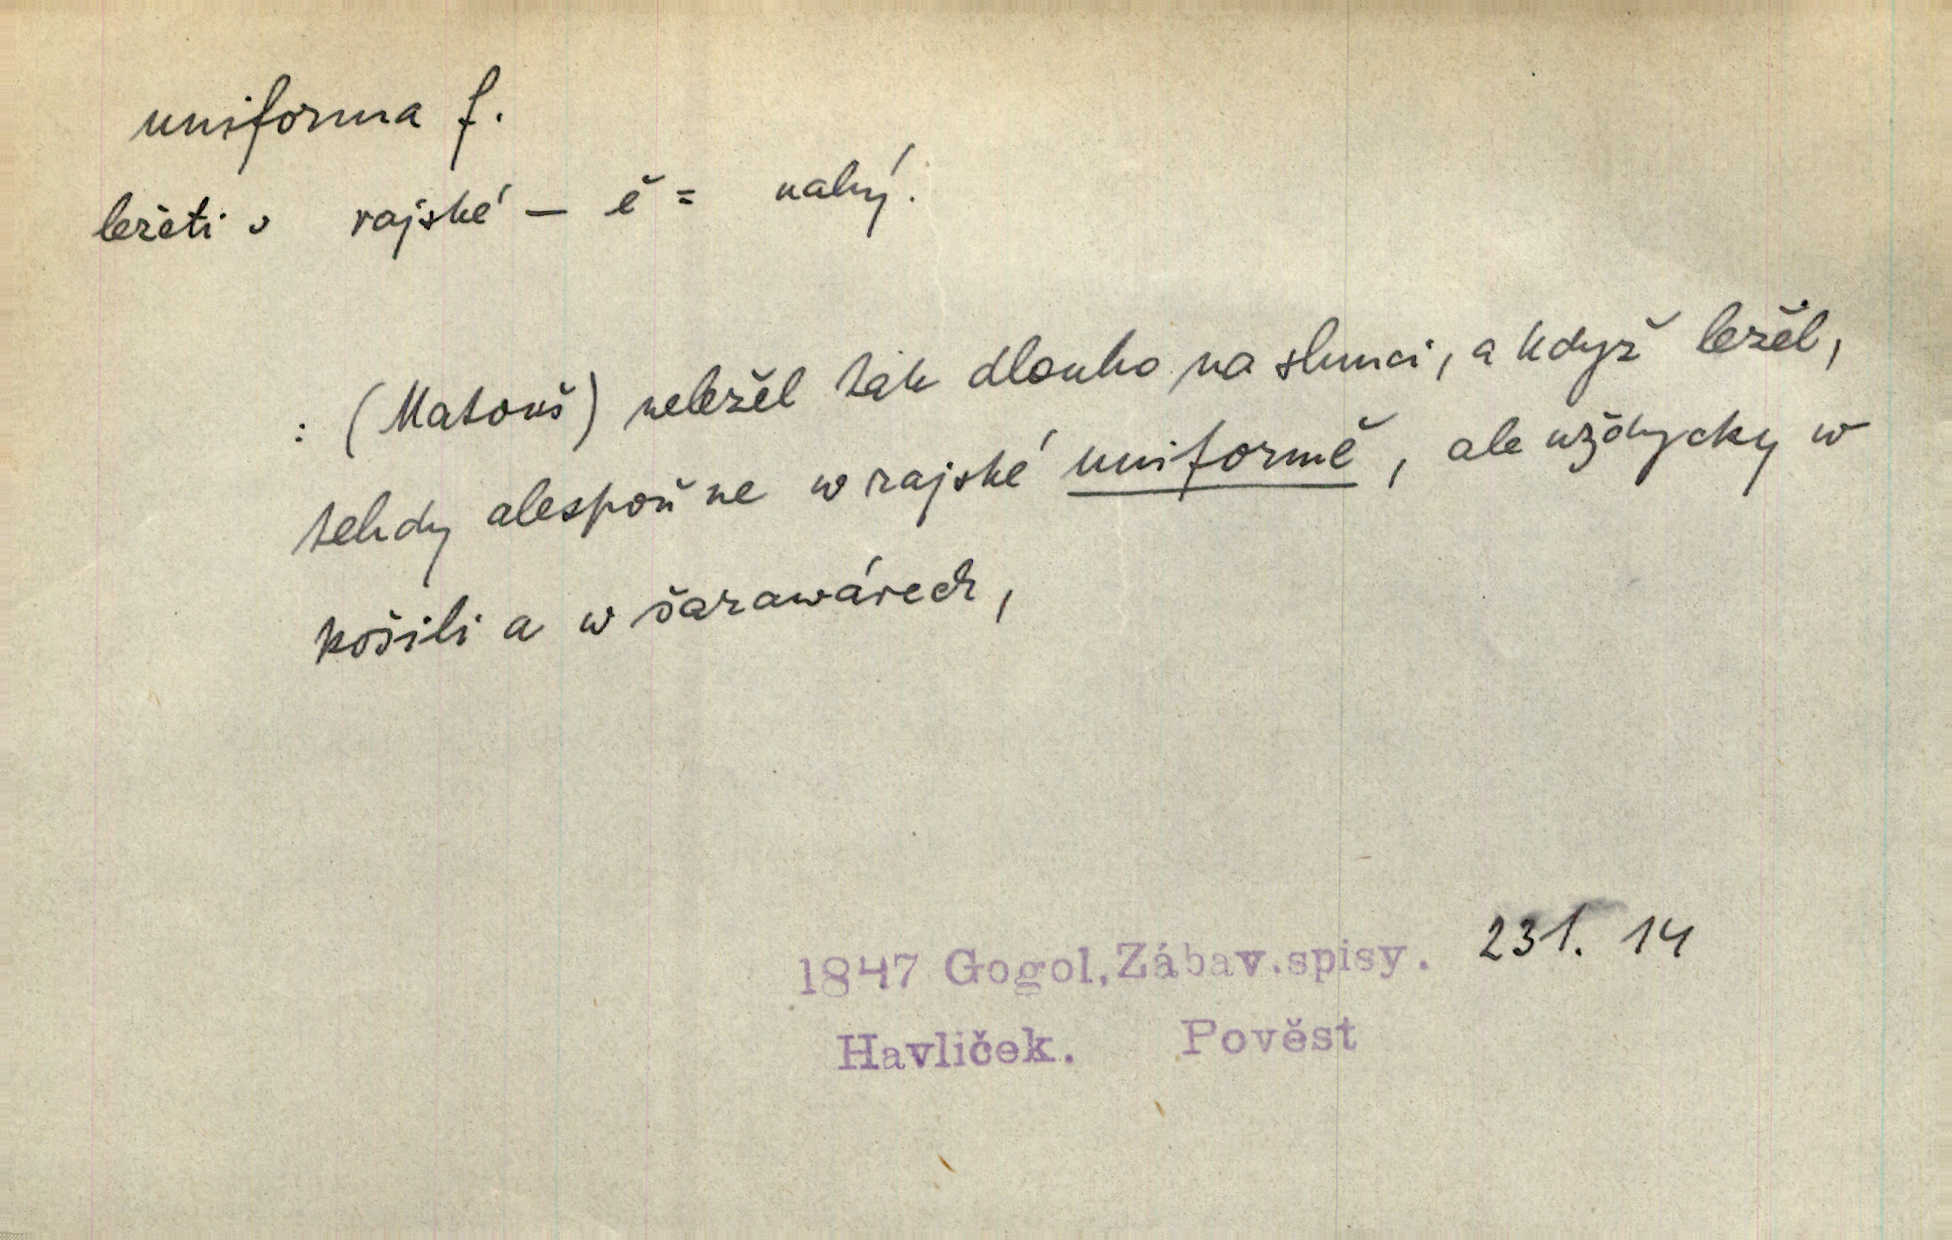 uniforma f.
ležeti v rajské – ě = nahý.
: (Matouš) neležel tak dlouho na slunci, a když ležel,
tehdy alespoň ne w rajské uniformě, ale wždycky w
košili a w šarawárech,
1847 Gogol,Zábav.spisy. 231. 14
Havlíček. Pověst